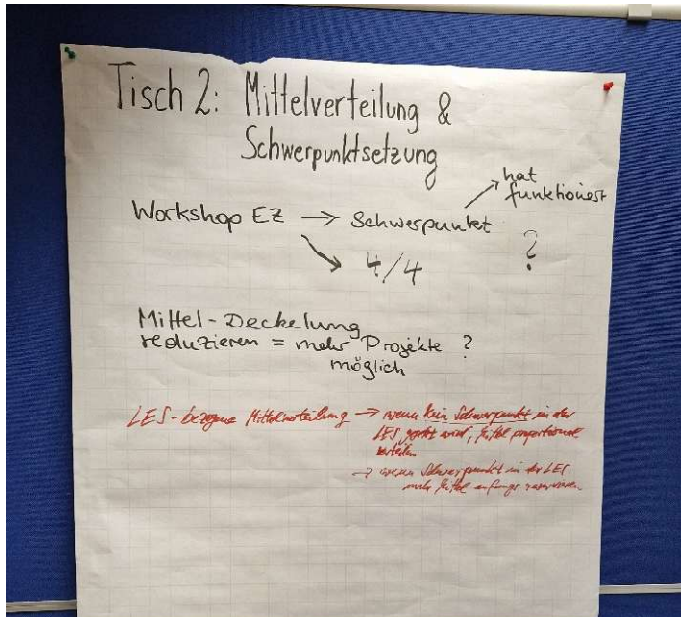 Tisch 2: Mittelverteilung &
Schwerpunktsetzung
hat
funktioniert
Workshop EZ → Schwerpunkt ?
4/4
Mittel-Deckelung
reduzieren = mehr Projekte ?
möglich
LES-bezogene Mittelverteilung → wenn kein Schwerpunkt in der
LES gesetzt wird, Mittel proportional
verteilen
→ wenn Schwerpunkt in der LES
mehr Mittel anfangs